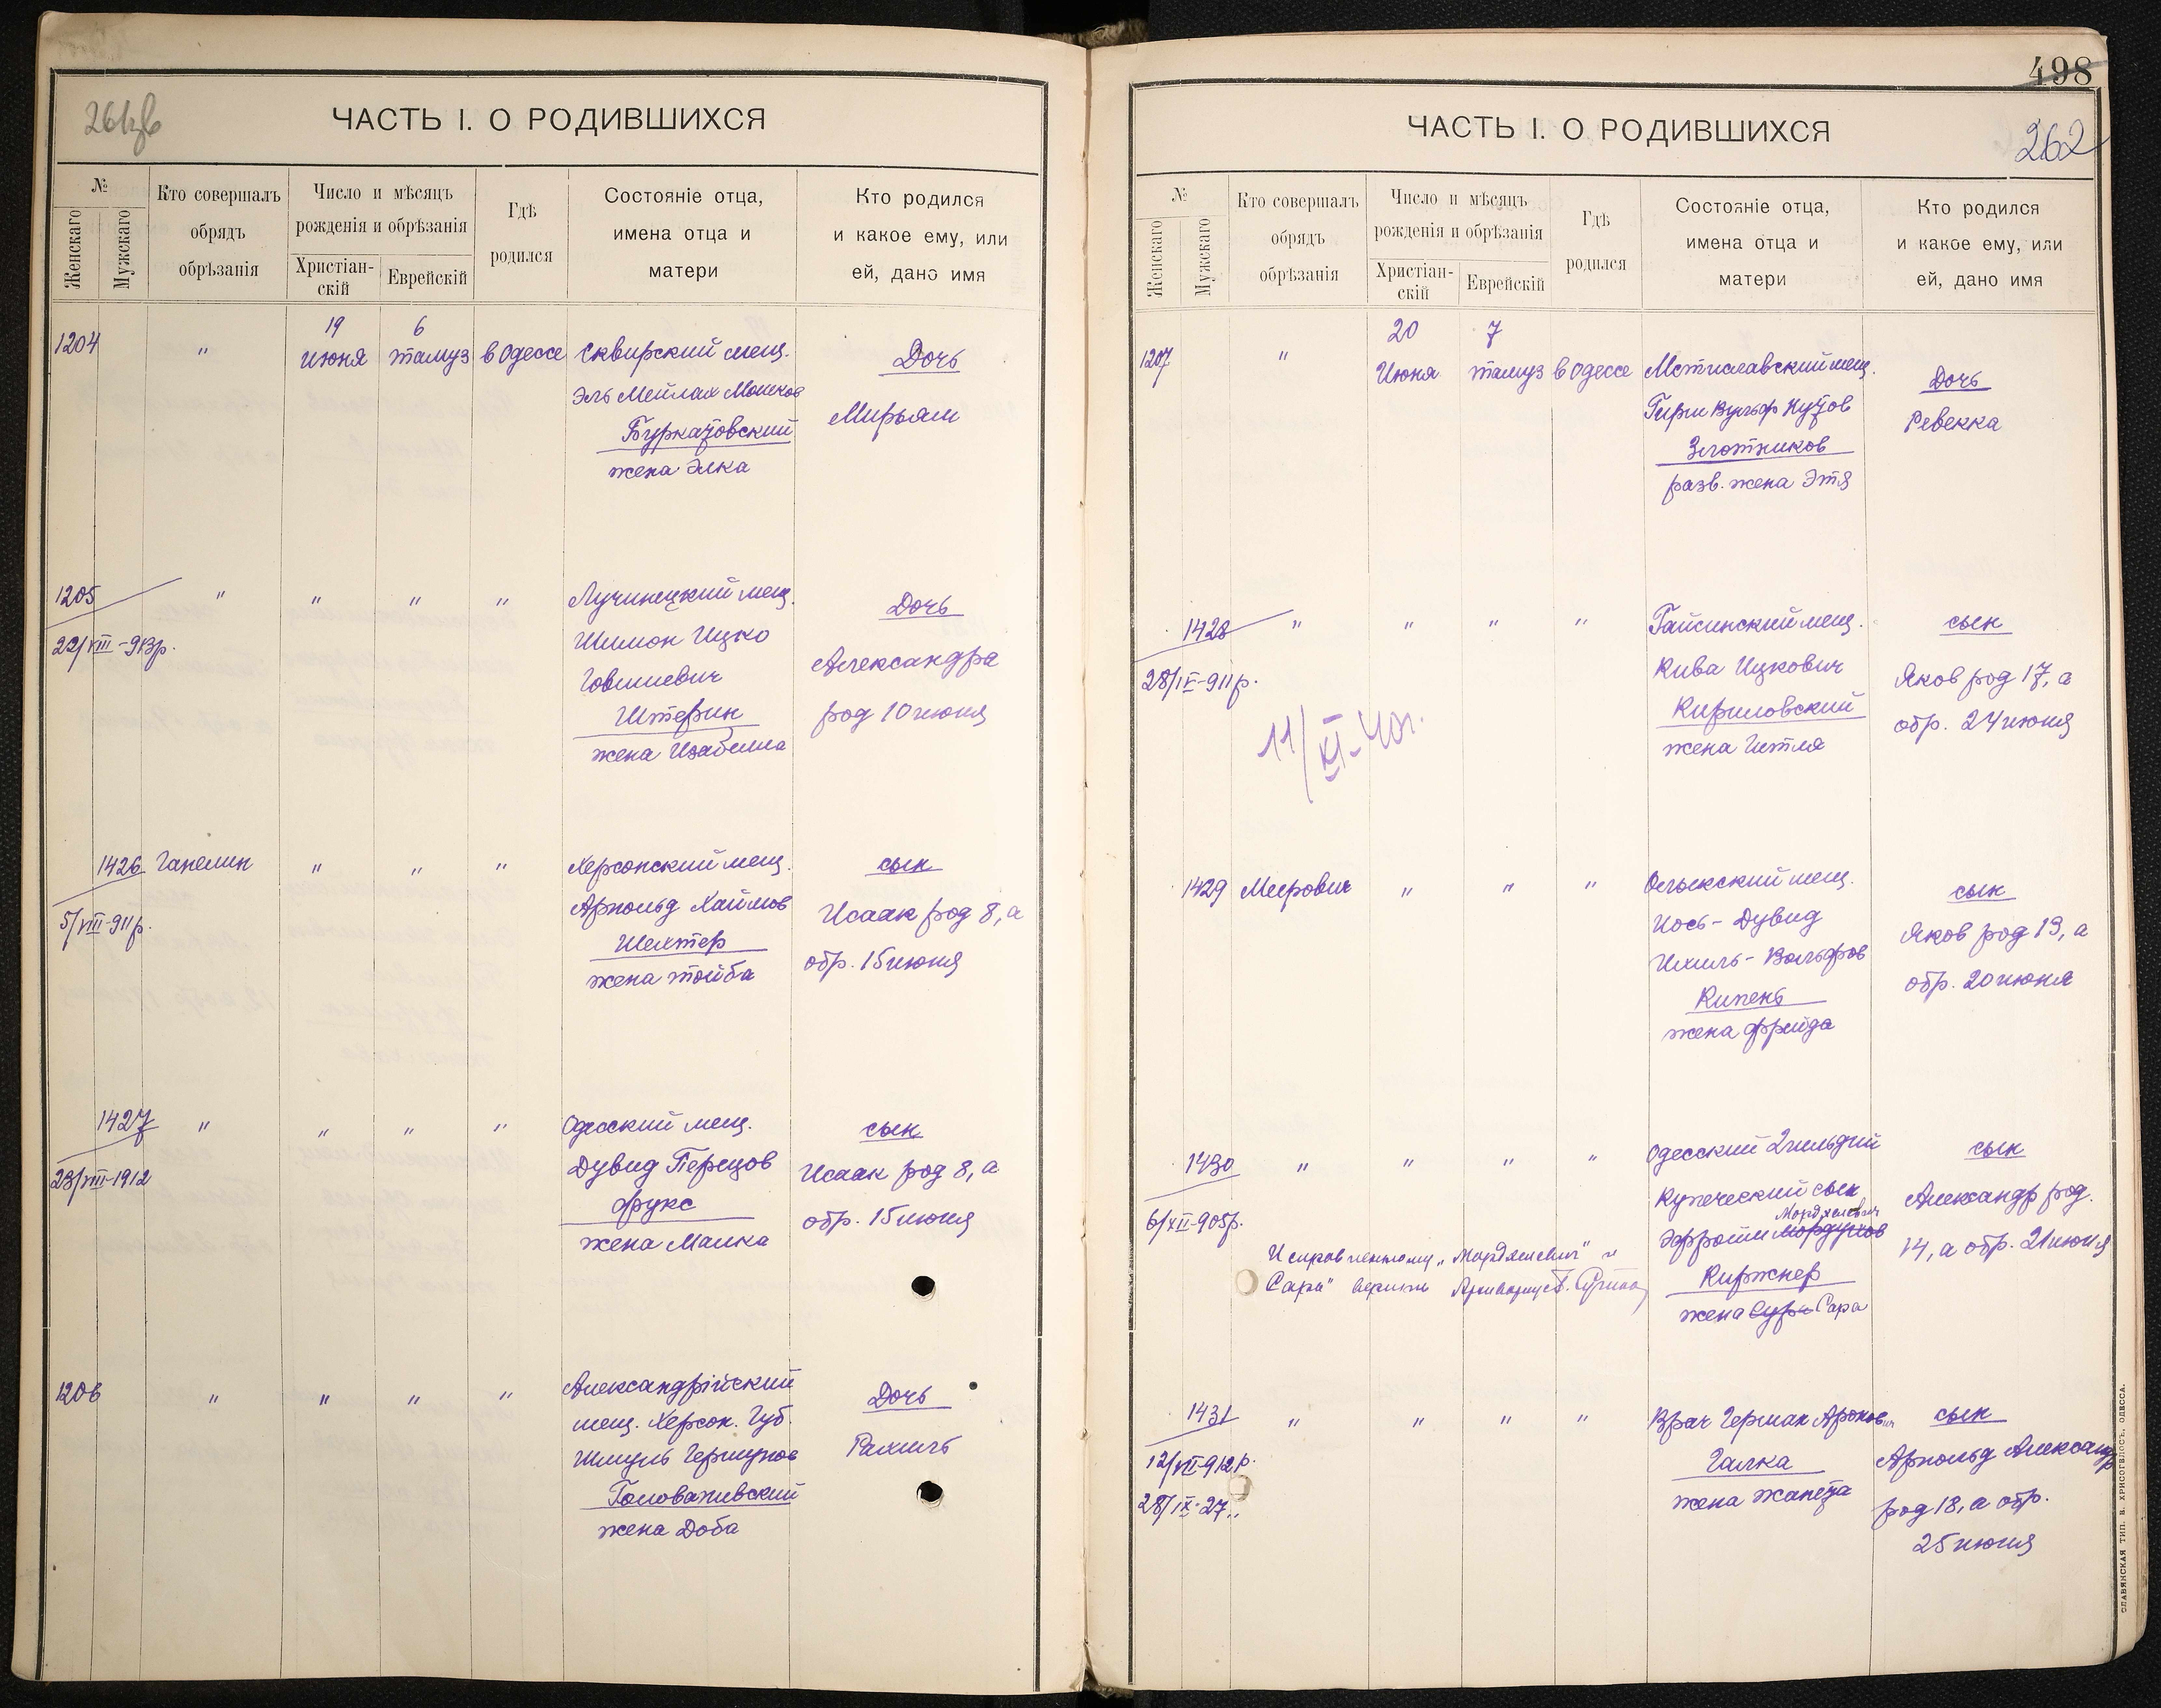 261зв
ЧАСТЬ I. О РОДИВШИХСЯ
№
Женскаго
Мужскаго
Кто совершалъ
обрядъ
обрѣзанія
Число и мѣсяцъ
рожденія и обрѣзанія
Христіан-
скій
Еврейскій
Гдѣ
родился
Состояніе отца,
имена отца и
матери
Кто родился
и какое ему, или
ей, дано имя
1204 " 19 июня 6 тамуз в Одессе
Сквирский мещ.
Эль Мейлах Мошков
Буркатовский
жена Элка
Дочь
Мирьям
1205 " " " "
22/VIII-913р.
Лучинецкий мещ.
Шимон Ицко
Говшиевич
Штерин
жена Изабелла
Дочь
Александра
род 10 июня
1426 Ганелин " " "
5/VIII-911р.
Херсонский мещ.
Арнольд Хаймов
Шехтер
жена Тойба
сын
Исаак род 8, а
обр. 15 июня
1427 " " " "
23/VIII-1912
Одесский мещ.
Дувид Перецов
Фукс
жена Малка
сын
Исаак род 8, а
обр. 15 июня
1206 " " " "
Александрійский
мещ. Херсон. Губ.
Шмуль Гершунов
Головановский
жена Доба
Дочь
Рахиль
498
262
ЧАСТЬ I. О РОДИВШИХСЯ
№
Женскаго
Мужскаго
Кто совершалъ
обрядъ
обрѣзанія
Число и мѣсяцъ
рожденія и обрѣзанія
Христіан-
скій
Еврейскій
Гдѣ
родился
Состояніе отца,
имена отца и
матери
Кто родился
и какое ему, или
ей, дано имя
1207 " 20 Июня 7 тамуз в Одессе
Мстиславский мещ.
Гирш Вульф Нутов
Злотников
разв. жена Этя
Дочь
Ревекка
1428 " " " "
28/IV-911р.
11/XI-40г.
Гайсинский мещ.
Кива Ицкович
Кириловский
жена Гитля
сын
Яков род 17, а
обр. 24 июня
1429 Меерович " " "
Олыкский мещ.
Иось-Дувид
Ихиль-Вольфов
Кипень
жена Фрейда
сын
Яков род 13, а
обр. 20 июня
1430 " " " "
6/XII-905р.
Одесский 2 гильдии
купеческий сын
Мордхелевич
Эфроим Мордухов
Киржнер
жена Сура Сара
сын
Александр род.
14, а обр. 21 июня
Исправленному "Мордхелевич" и
"Сара" верить Архивариус
1431 " " " "
12/VII-912р.
28/IX-27..
Врач Герман Аронович
Галка
жена Жанета
сын
Арнольд Александр
род 18, а обр.
25 июня
СЛАВЯНСКАЯ ТИП. Н. ХРИСОГЕЛОСЪ, ОДЕССА.